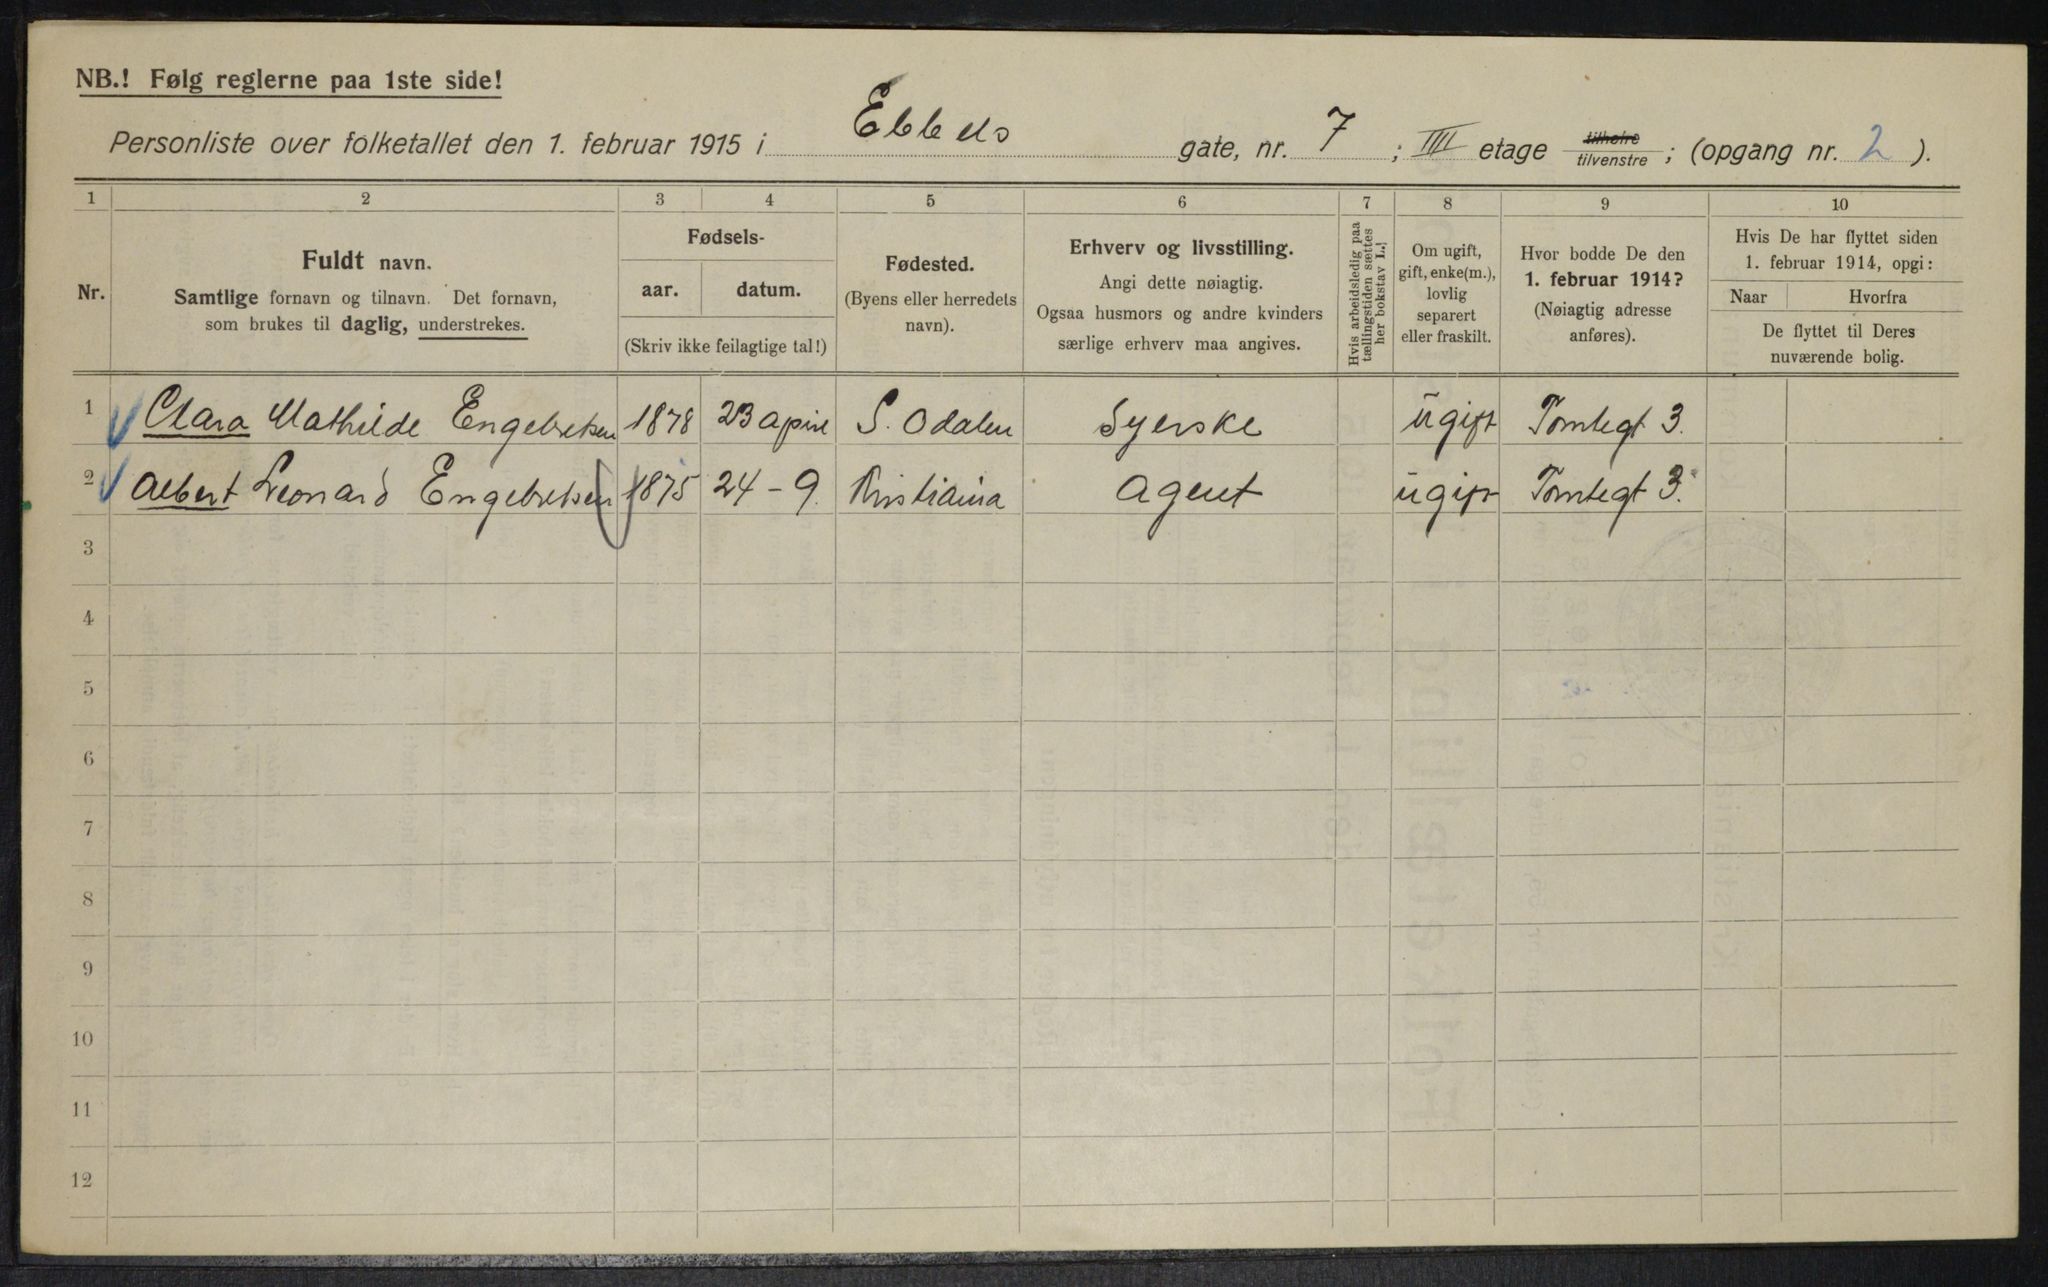 NB.! Følg reglerne paa 1ste side!
Personliste over folketallet den 1. februar 1915 i Ebbels gate, nr. 7 ; IIII etage tilhøire tilvenstre ; (opgang nr. 2 ).
1 2 3 4 5 6 7 8 9 10
Nr.
Fuldt navn.
Samtlige fornavn og tilnavn. Det fornavn,
som brukes til daglig, understrekes.
Fødsels-
aar. datum.
(Skriv ikke feilagtige tal!)
Fødested.
(Byens eller herredets
navn).
Erhverv og livsstilling.
Angi dette nøiagtig.
Ogsaa husmors og andre kvinders
særlige erhverv maa angives.
Hvis arbeidsledig paa
tællingstiden sættes
her bokstav L.!
Om ugift,
gift, enke(m.),
lovlig
separert
eller fraskilt.
Hvor bodde De den
1. februar 1914?
(Nøiagtig adresse
anføres).
Hvis De har flyttet siden
1. februar 1914, opgi:
Naar Hvorfra
De flyttet til Deres
nuværende bolig.
1 Clara Mathilde Engebretsen 1878 23 april S. Odalen Syerske ugift Tomtegt 3.
2 Albert Leonard Engebretsen 1875 24 - 9. Kristiania Agent ugift Tomtegt 3.
3
4
5
6
7
8
9
10
11
12